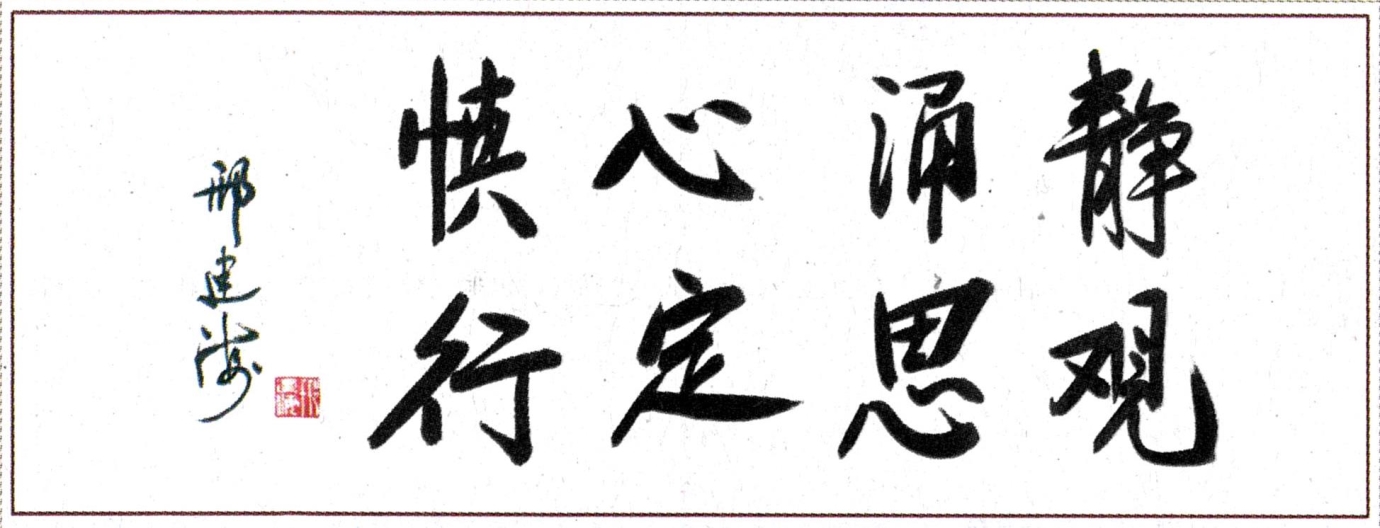 静观
涌思
心定
慎行
邢建海